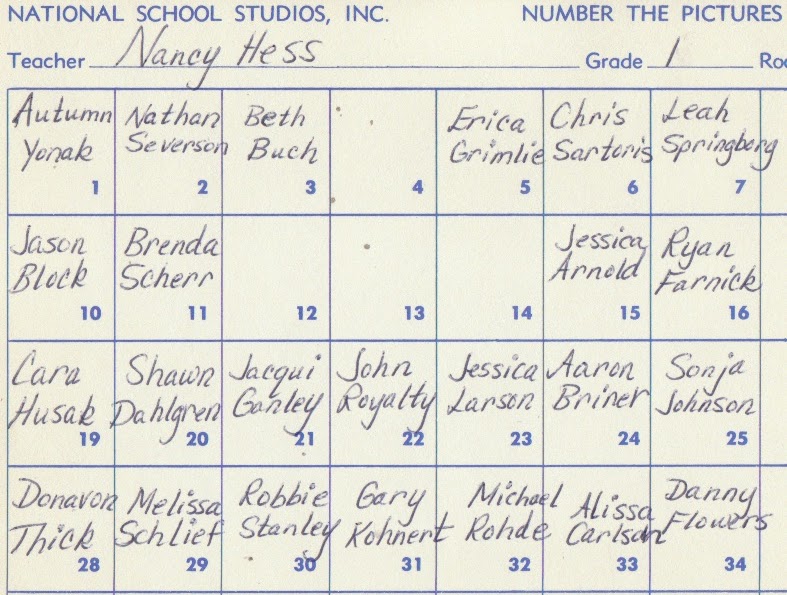 NATIONAL SCHOOL STUDIOS, INC. NUMBER THE PICTURES
Teacher Nancy Hess Grade 1 Roo
Autumn Nathan Beth Erica Chris Leah
Yonak Severson Buch Grimlie Sartoris Springborg
1 2 3 4 5 6 7
Jason Brenda Jessica Ryan
Block Scherr Arnold Farnick
10 11 12 13 14 15 16
Cara Shawn Jacqui John Jessica Aaron Sonja
Husak Dahlgren Ganley Royalty Larson Briner Johnson
19 20 21 22 23 24 25
Donavon Melissa Robbie Gary Michael Alissa Danny
Thick Schlief Stanley Kohnert Rohde Carlson Flowers
28 29 30 31 32 33 34